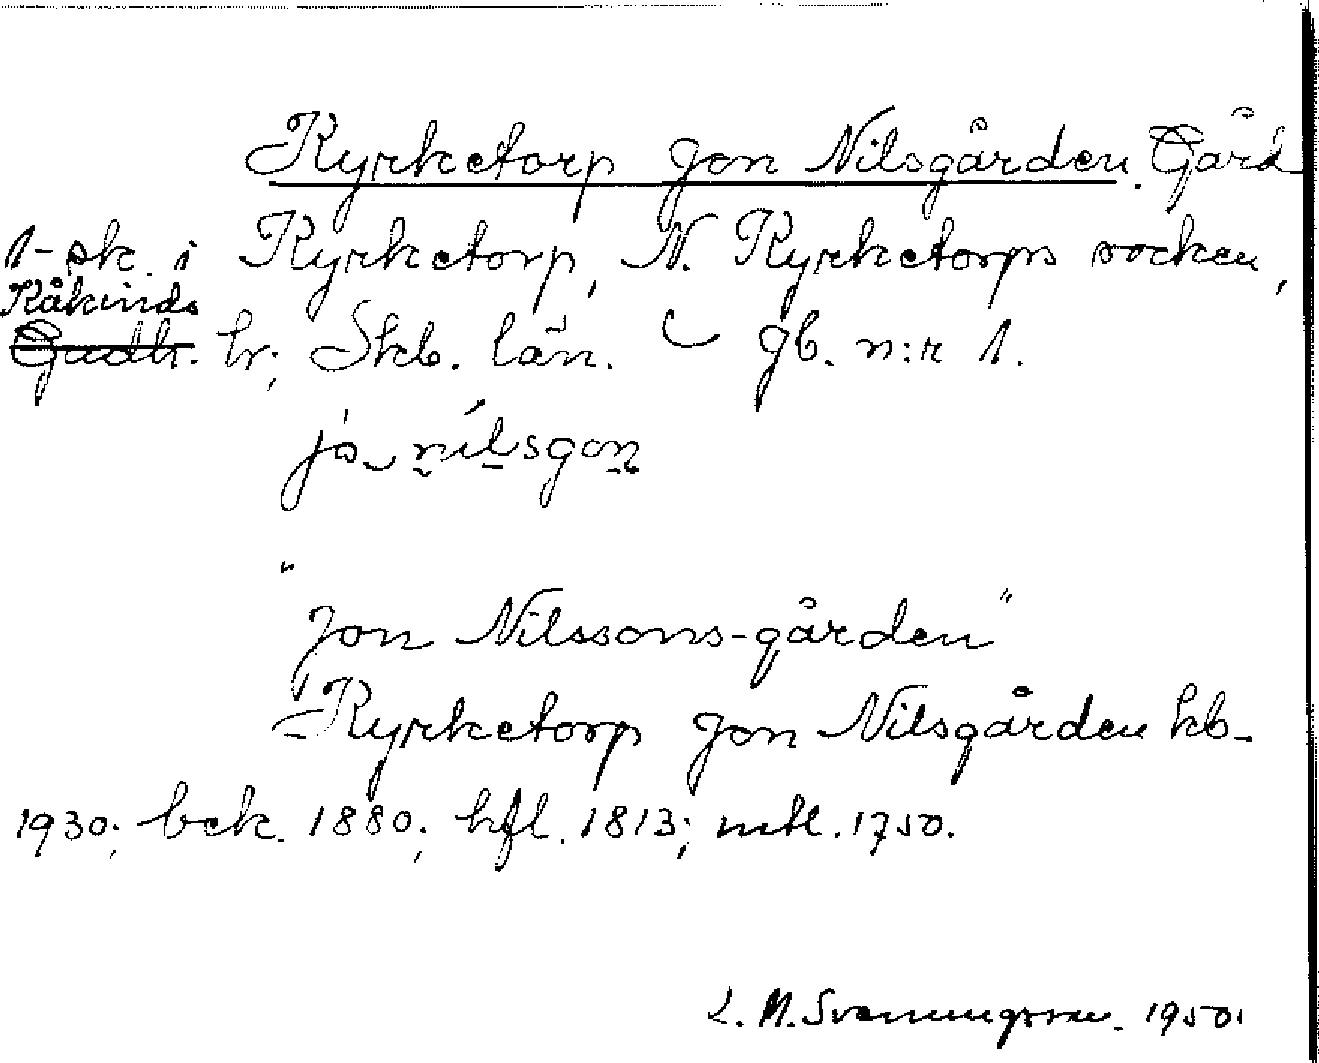 Kyrketorp Jon Nilsgården. Gård
1-sk. i Kyrketorp, N. Kyrketorps socken,
Kåkinds
Gudh. hr; Skb. län. gb. n:r 1.
jo nilsgon
"Jon Nilssons-gården"
Kyrketorp Jon Nilsgården kb.
1930; bek. 1880; hfl. 1813; mtl. 1750.
L. M. Svenungsson. 1950.